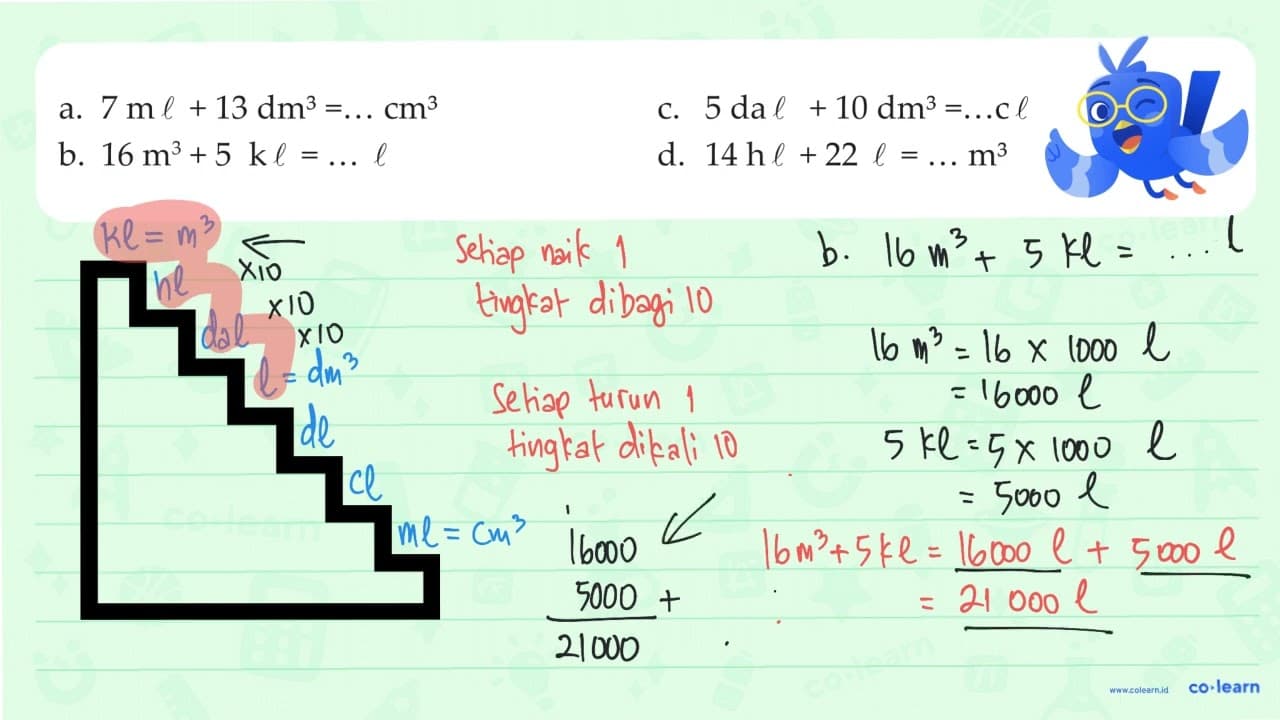 a. 7 m ℓ + 13 dm³ =... cm³
b. 16 m³ + 5 k ℓ = ... ℓ
c. 5 da ℓ + 10 dm³ =...c ℓ
d. 14 h ℓ + 22 ℓ = ... m³
kl = m³
hl
dal
l = dm³
dl
cl
ml = cm³
x10
x10
x10
Setiap naik 1
tingkat dibagi 10
Setiap turun 1
tingkat dikali 10
1
16000
5000 +
21000
b. 16 m³ + 5 kl = ... l
16 m³ = 16 x 1000 l
= 16000 l
5 kl = 5 x 1000 l
= 5000 l
16 m³ + 5 kl = 16000 l + 5000 l
= 21 000 l
co·learn
co·learn
co·learn
www.colearn.id
co·learn